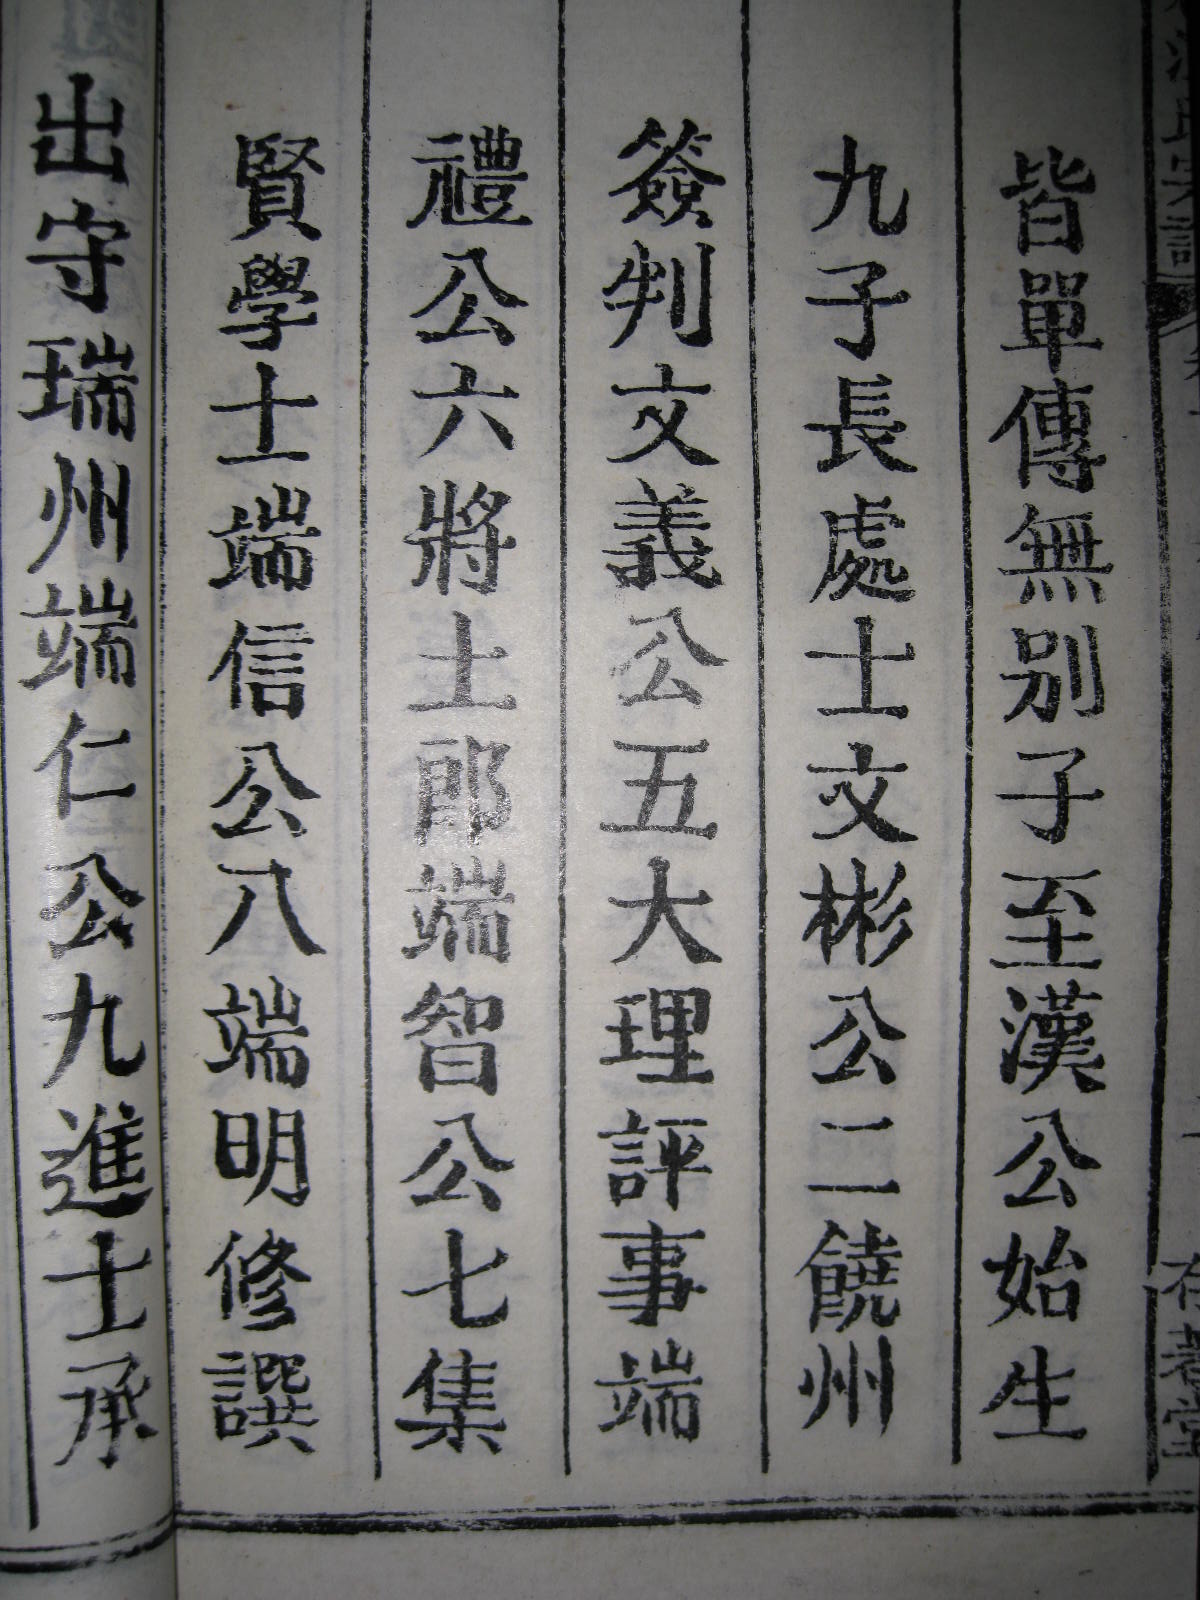 皆單傳無别子至漢公始生
九子長處士文彬公二饒州
簽判文義公五大理評事端
禮公六將士郎端智公七集
賢學士端信公八端明修譔
出守瑞州端仁公九進士承